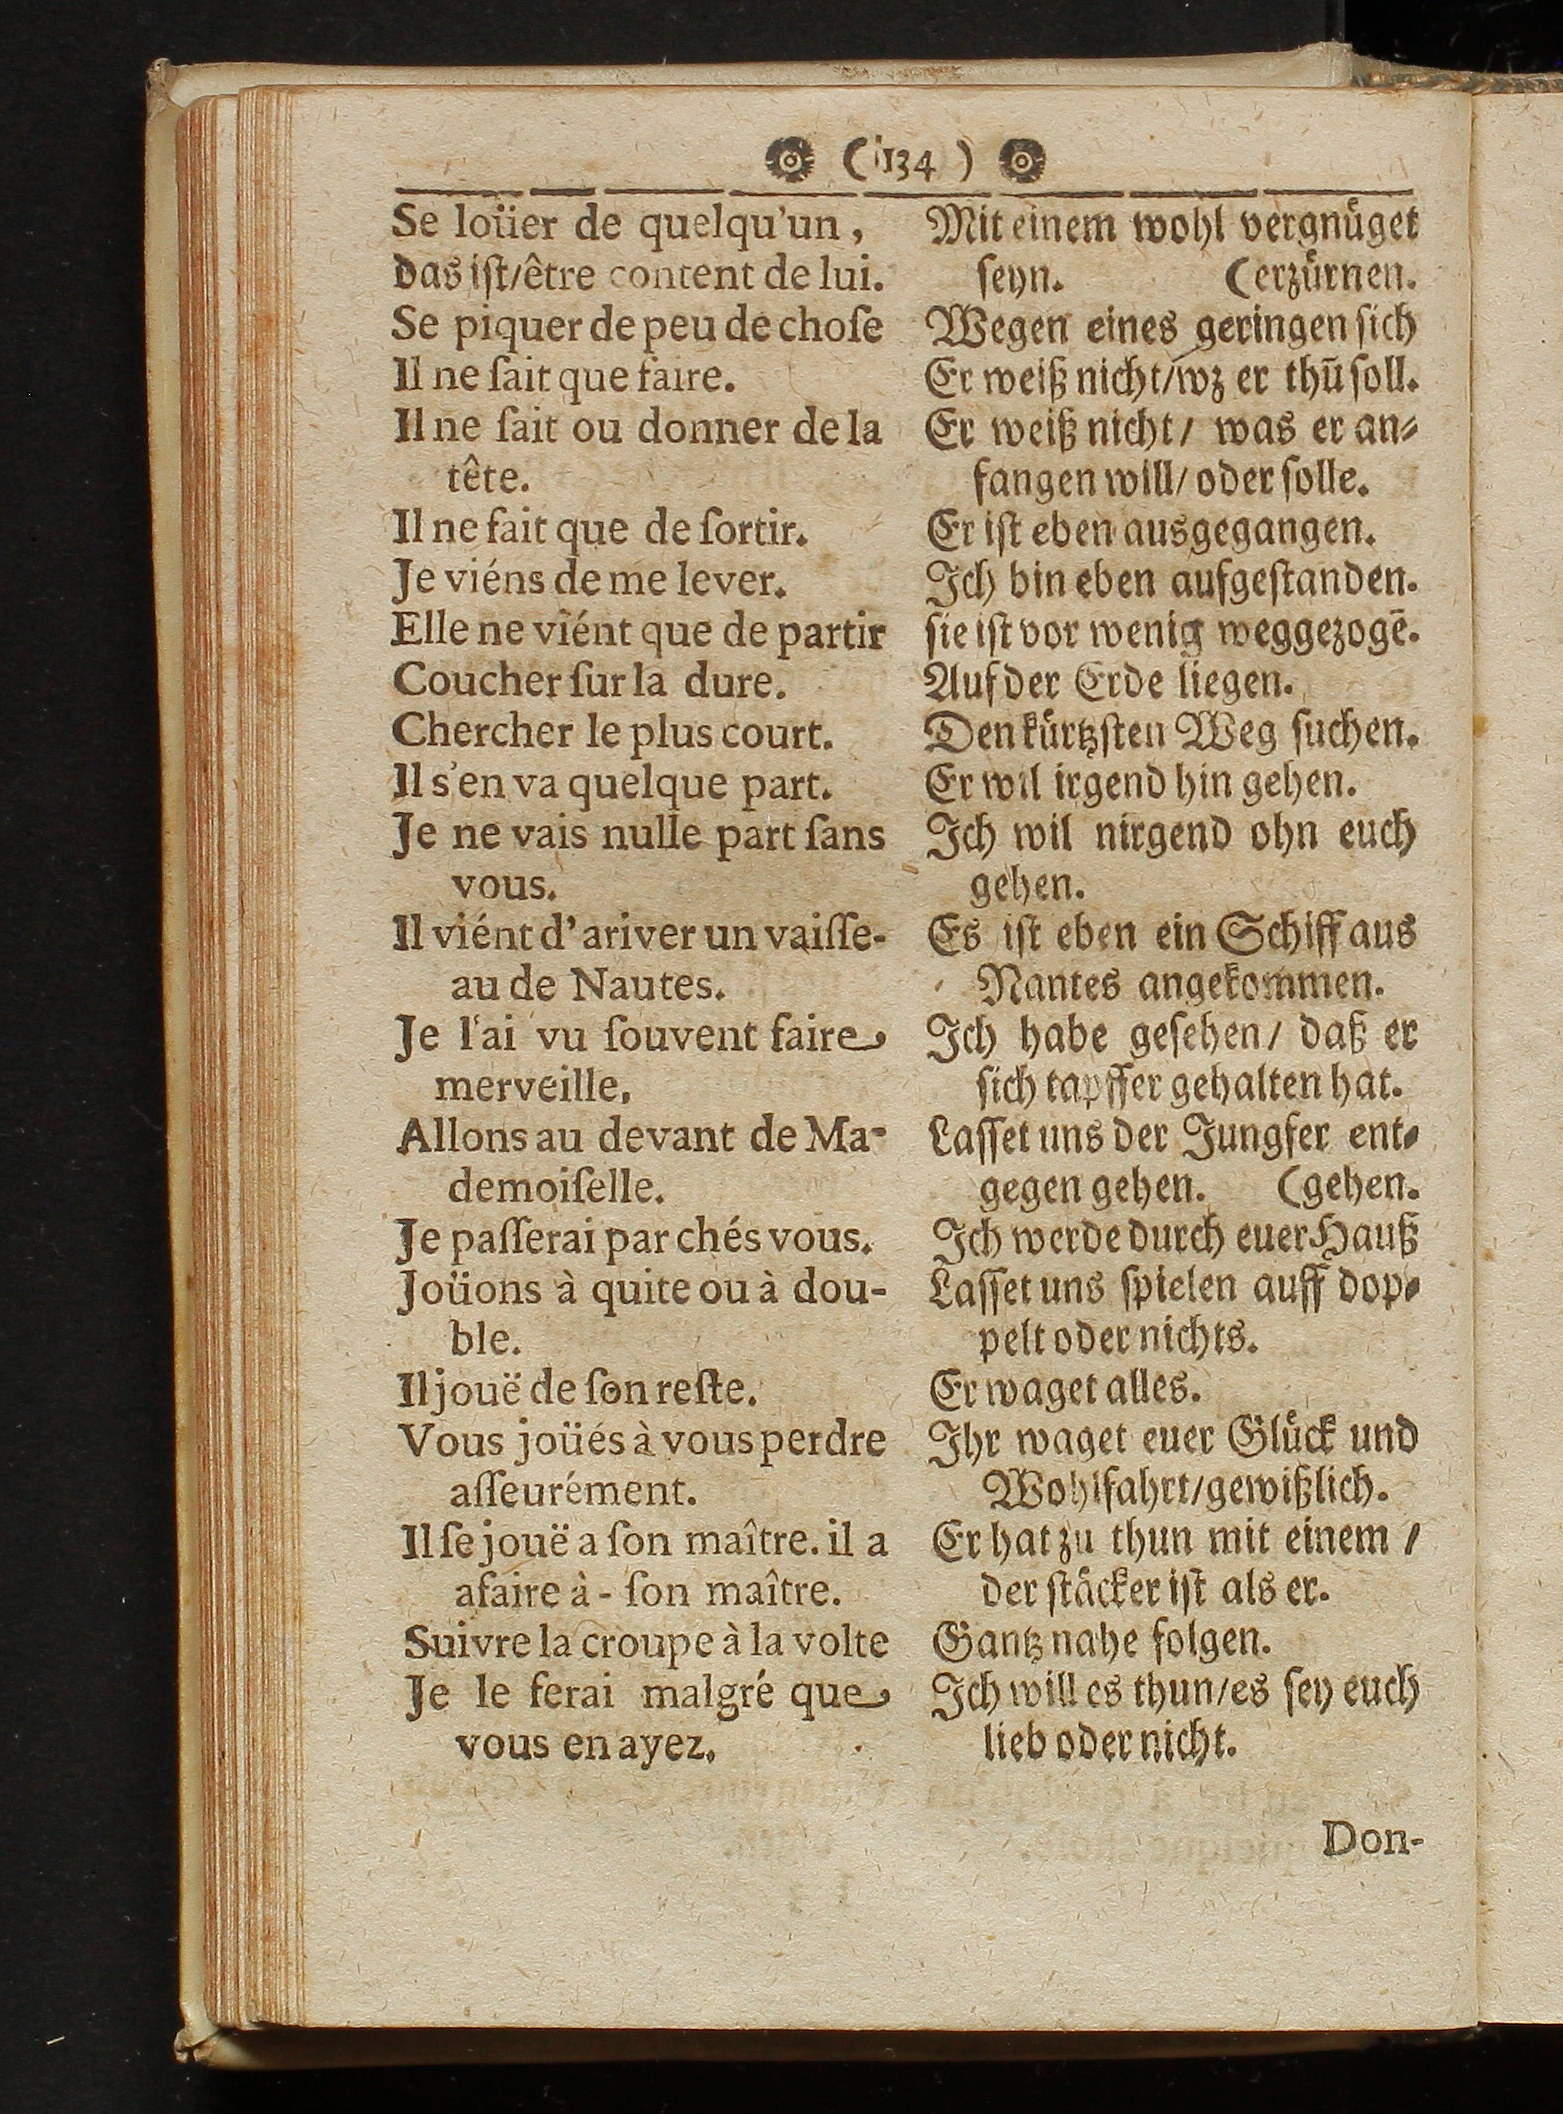 ( 134 )
Se loüer de quelqu'un,
das iſt/ être content de lui.
Se piquer de peu de choſe
Il ne ſait que faire.
Il ne ſait ou donner de la
tête.
Il ne fait que de ſortir.
Je viéns de me lever.
Elle ne viént que de partir
Coucher ſur la dure.
Chercher le plus court.
Il s'en va quelque part.
Je ne vais nulle part ſans
vous.
Il viént d'ariver un vaiſſe-
au de Nautes.
Je l'ai vu ſouvent faire
merveille.
Allons au devant de Ma-
demoiſelle.
Je paſſerai par chés vous.
Joüons à quite ou à dou-
ble.
Il jouë de ſon reſte.
Vous joüés à vous perdre
aſſeurément.
Il ſe jouë a ſon maître. il a
afaire à - ſon maître.
Suivre la croupe à la volte
Je le ferai malgré que
vous en ayez.
Mit einem wohl vergnuͤget
ſeyn. (erzuͤrnen.
Wegen eines geringen ſich
Er weiß nicht/ wz er thū ſoll.
Er weiß nicht/ was er an⸗
fangen will/ oder ſolle.
Er iſt eben ausgegangen.
Ich bin eben aufgeſtanden.
ſie iſt vor wenig weggezogē.
Auf der Erde liegen.
Den kuͤrtzſten Weg ſuchen.
Er wil irgend hin gehen.
Ich wil nirgend ohn euch
gehen.
Es iſt eben ein Schiff aus
Nantes angekommen.
Ich habe geſehen/ daß er
ſich tapffer gehalten hat.
Laſſet uns der Jungfer ent⸗
gegen gehen. (gehen.
Ich werde durch euer Hauß
Laſſet uns ſpielen auff dop⸗
pelt oder nichts.
Er waget alles.
Ihr waget euer Gluͤck und
Wohlfahrt/ gewißlich.
Er hat zu thun mit einem /
der ſtaͤcker iſt als er.
Gantz nahe folgen.
Ich will es thun/ es ſey euch
lieb oder nicht.
Don-